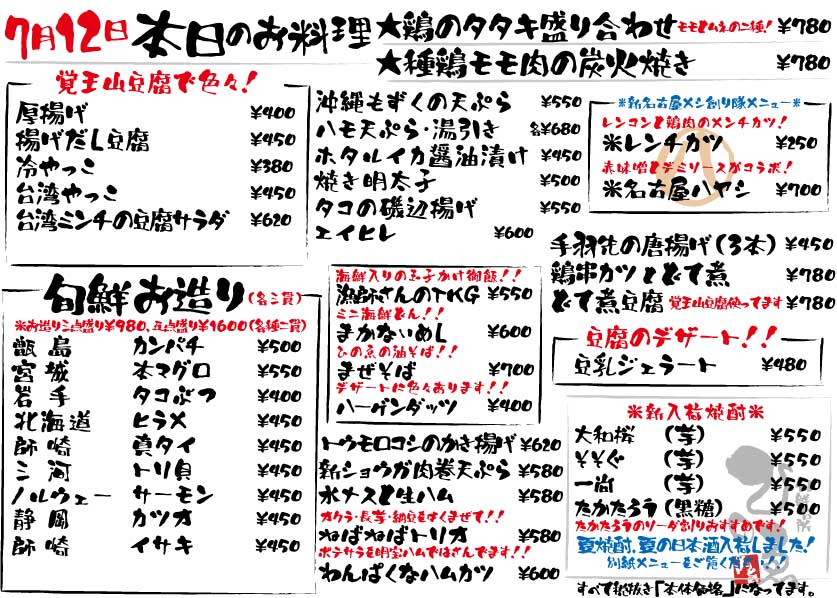 7月12日 本日のお料理
★鶏のタタキ盛り合わせ モモとムネの二種! ¥780
★種鶏モモ肉の炭火焼き ¥780
覚王山豆腐で色々!
厚揚げ ¥400
揚げだし豆腐 ¥450
冷やっこ ¥380
台湾やっこ ¥450
台湾ミンチの豆腐サラダ ¥620
沖縄もずくの天ぷら ¥550
ハモ天ぷら・湯引き 各¥680
ホタルイカ醤油漬け ¥450
焼き明太子 ¥500
タコの磯辺揚げ ¥550
エイヒレ ¥600
※新名古屋メシ創り隊メニュー※
レンコンと鶏肉のメンチカツ!
米レンチカツ ¥250
赤味噌とデミソースがコラボ!
米名古屋ハヤシ ¥700
手羽先の唐揚げ(3本) ¥450
鶏串カツとどて煮 ¥780
どて煮豆腐 覚王山豆腐使ってます ¥780
豆腐のデザート!!
豆乳ジェラート ¥480
旬鮮お造り(各三貫)
※お造り三点盛り¥980、五点盛り¥1600(各種二貫)
甑島 カンパチ ¥500
宮城 本マグロ ¥550
岩手 タコぶつ ¥400
北海道 ヒラメ ¥450
師崎 真タイ ¥450
三河 トリ貝 ¥450
ノルウェー サーモン ¥450
静岡 カツオ ¥450
師崎 イサキ ¥450
海鮮入りの玉子かけ御飯!!
漁師さんのTKG ¥550
ミニ海鮮どん!!
まかないめし ¥600
ひのゑの油そば!!
まぜそば ¥700
デザートに色々あります!!
ハーゲンダッツ ¥400
トウモロコシのかき揚げ ¥620
新ショウガ肉巻天ぷら ¥580
水ナスと生ハム ¥580
オクラ・長芋・納豆をよくまぜて!!
ねばねばトリオ ¥580
ポテサラを明宝ハムではさんでます!!
わんぱくなハムカツ ¥600
※新入荷焼酎※
大和桜 (芋) ¥550
そそぐ (芋) ¥550
一尚 (芋) ¥550
たかたろう(黒糖) ¥500
たかたろうのソーダ割りおすすめです!
夏焼酎、夏の日本酒入荷しました!
別紙メニューをご覧ください!!
すべて税抜き「本体価格」になってます。